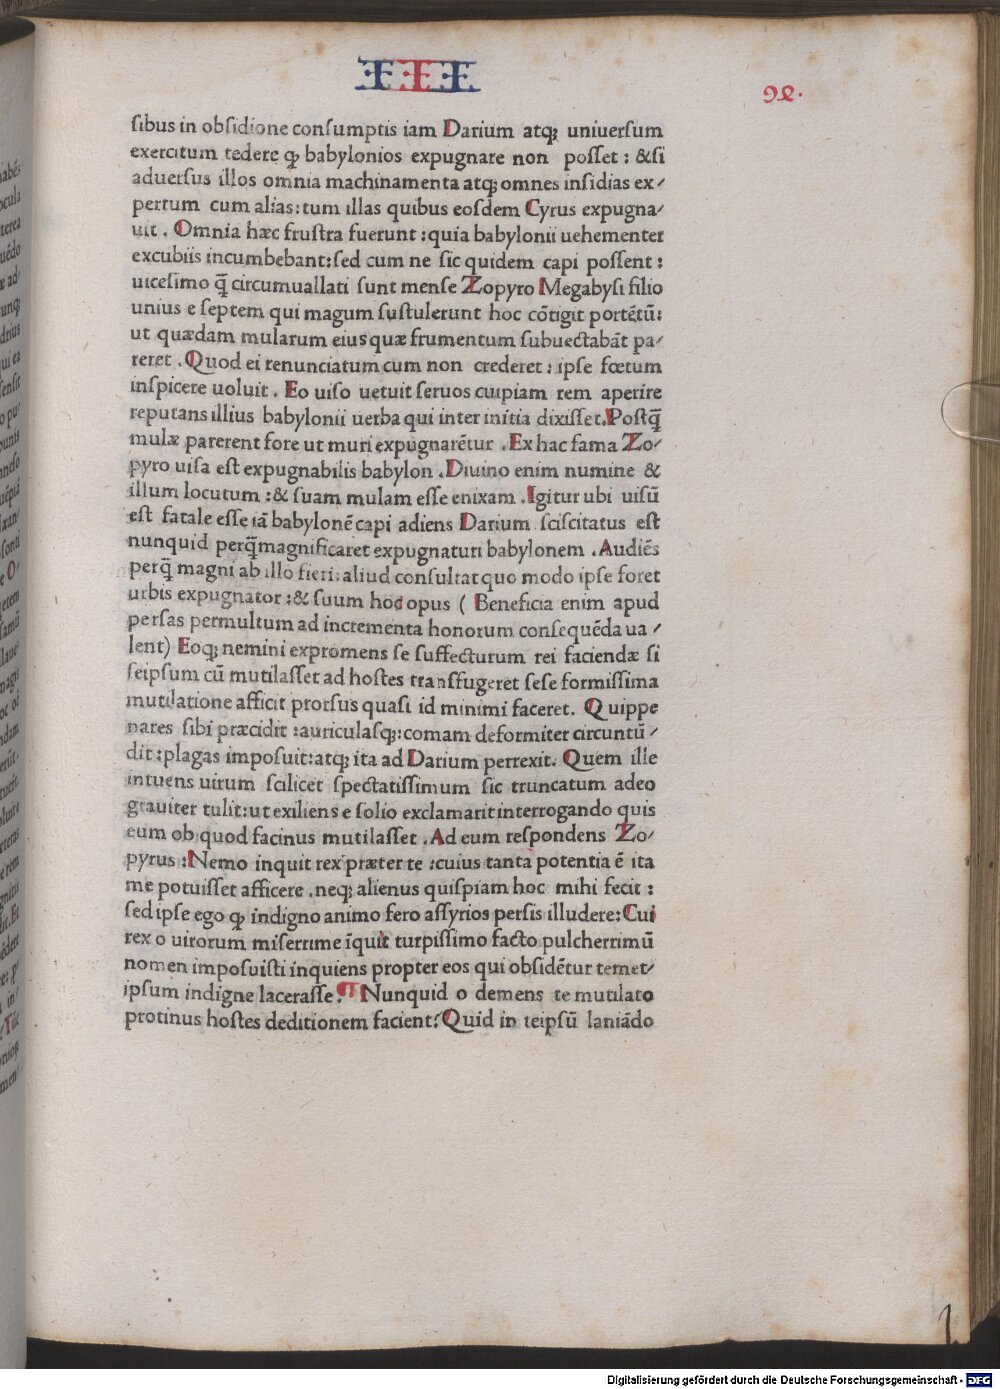 III
92.
sibus in obsidione consumptis iam Darium atq; uniuersum
exercitum tedere qp babylonios expugnare non posset : &si
aduersus illos omnia machinamenta atq; omnes insidias ex/
pertum cum alias:tum illas quibus eosdem Cyrus expugna/
uit . Omnia hæc frustra fuerunt :quia babylonii uehementer
excubiis incumbebant:sed cum ne sic quidem capi possent :
uicesimo q̄ circumuallati sunt mense Zopyro Megabysi filio
unius e septem qui magum sustulerunt hoc cōtigit portētū:
ut quædam mularum eius quæ frumentum subuectabāt pa/
reret . Quod ei renunciatum cum non crederet : ipse fœtum
inspicere uoluit . Eo uiso uetuit seruos cuipiam rem aperire
reputans illius babylonii uerba qui inter initia dixisset.Postq̄
mulæ parerent fore ut muri expugnarētur . Ex hac fama Zo/
pyro uisa est expugnabilis babylon . Diuino enim numine &
illum locutum :& suam mulam esse enixam . Igitur ubi uisū
est fatale esse iā babylonē capi adiens Darium sciscitatus est
nunquid perq̄magnificaret expugnaturi babylonem . Audiēs
perq̄ magni ab illo fieri:aliud consultat quo modo ipse foret
urbis expugnator :& suum hoc opus ( Beneficia enim apud
persas permultum ad incrementa honorum consequēda ua /
lent) Eoq; nemini expromens se suffecturum rei faciendæ si
seipsum cū mutilasset ad hostes transfugeret sese formissima
mutilatione afficit prorsus quasi id minimi faceret. Quippe
nares sibi præcidit :auriculasq;:comam deformiter circuntū /
dit :plagas imposuit:atq; ita ad Darium perrexit. Quem ille
intuens uirum scilicet spectatissimum sic truncatum adeo
grauiter tulit:ut exiliens e solio exclamarit interrogando quis
eum ob quod facinus mutilasset . Ad eum respondens Zo/
pyrus :Nemo inquit rex præter te :cuius tanta potentia ē ita
me potuisset afficere .neq; alienus quispiam hoc mihi fecit :
sed ipse ego qp indigno animo fero assyrios persis illudere: Cui
rex o uirorum miserrime īquit turpissimo facto pulcherrimū
nomen imposuisti inquiens propter eos qui obsidētur temet/
ipsum indigne lacerasse? Nunquid o demens te mutilato
protinus hostes deditionem facient? Quid in teipsū laniādo
Digitalisierung gefördert durch die Deutsche Forschungsgemeinschaft - DFG